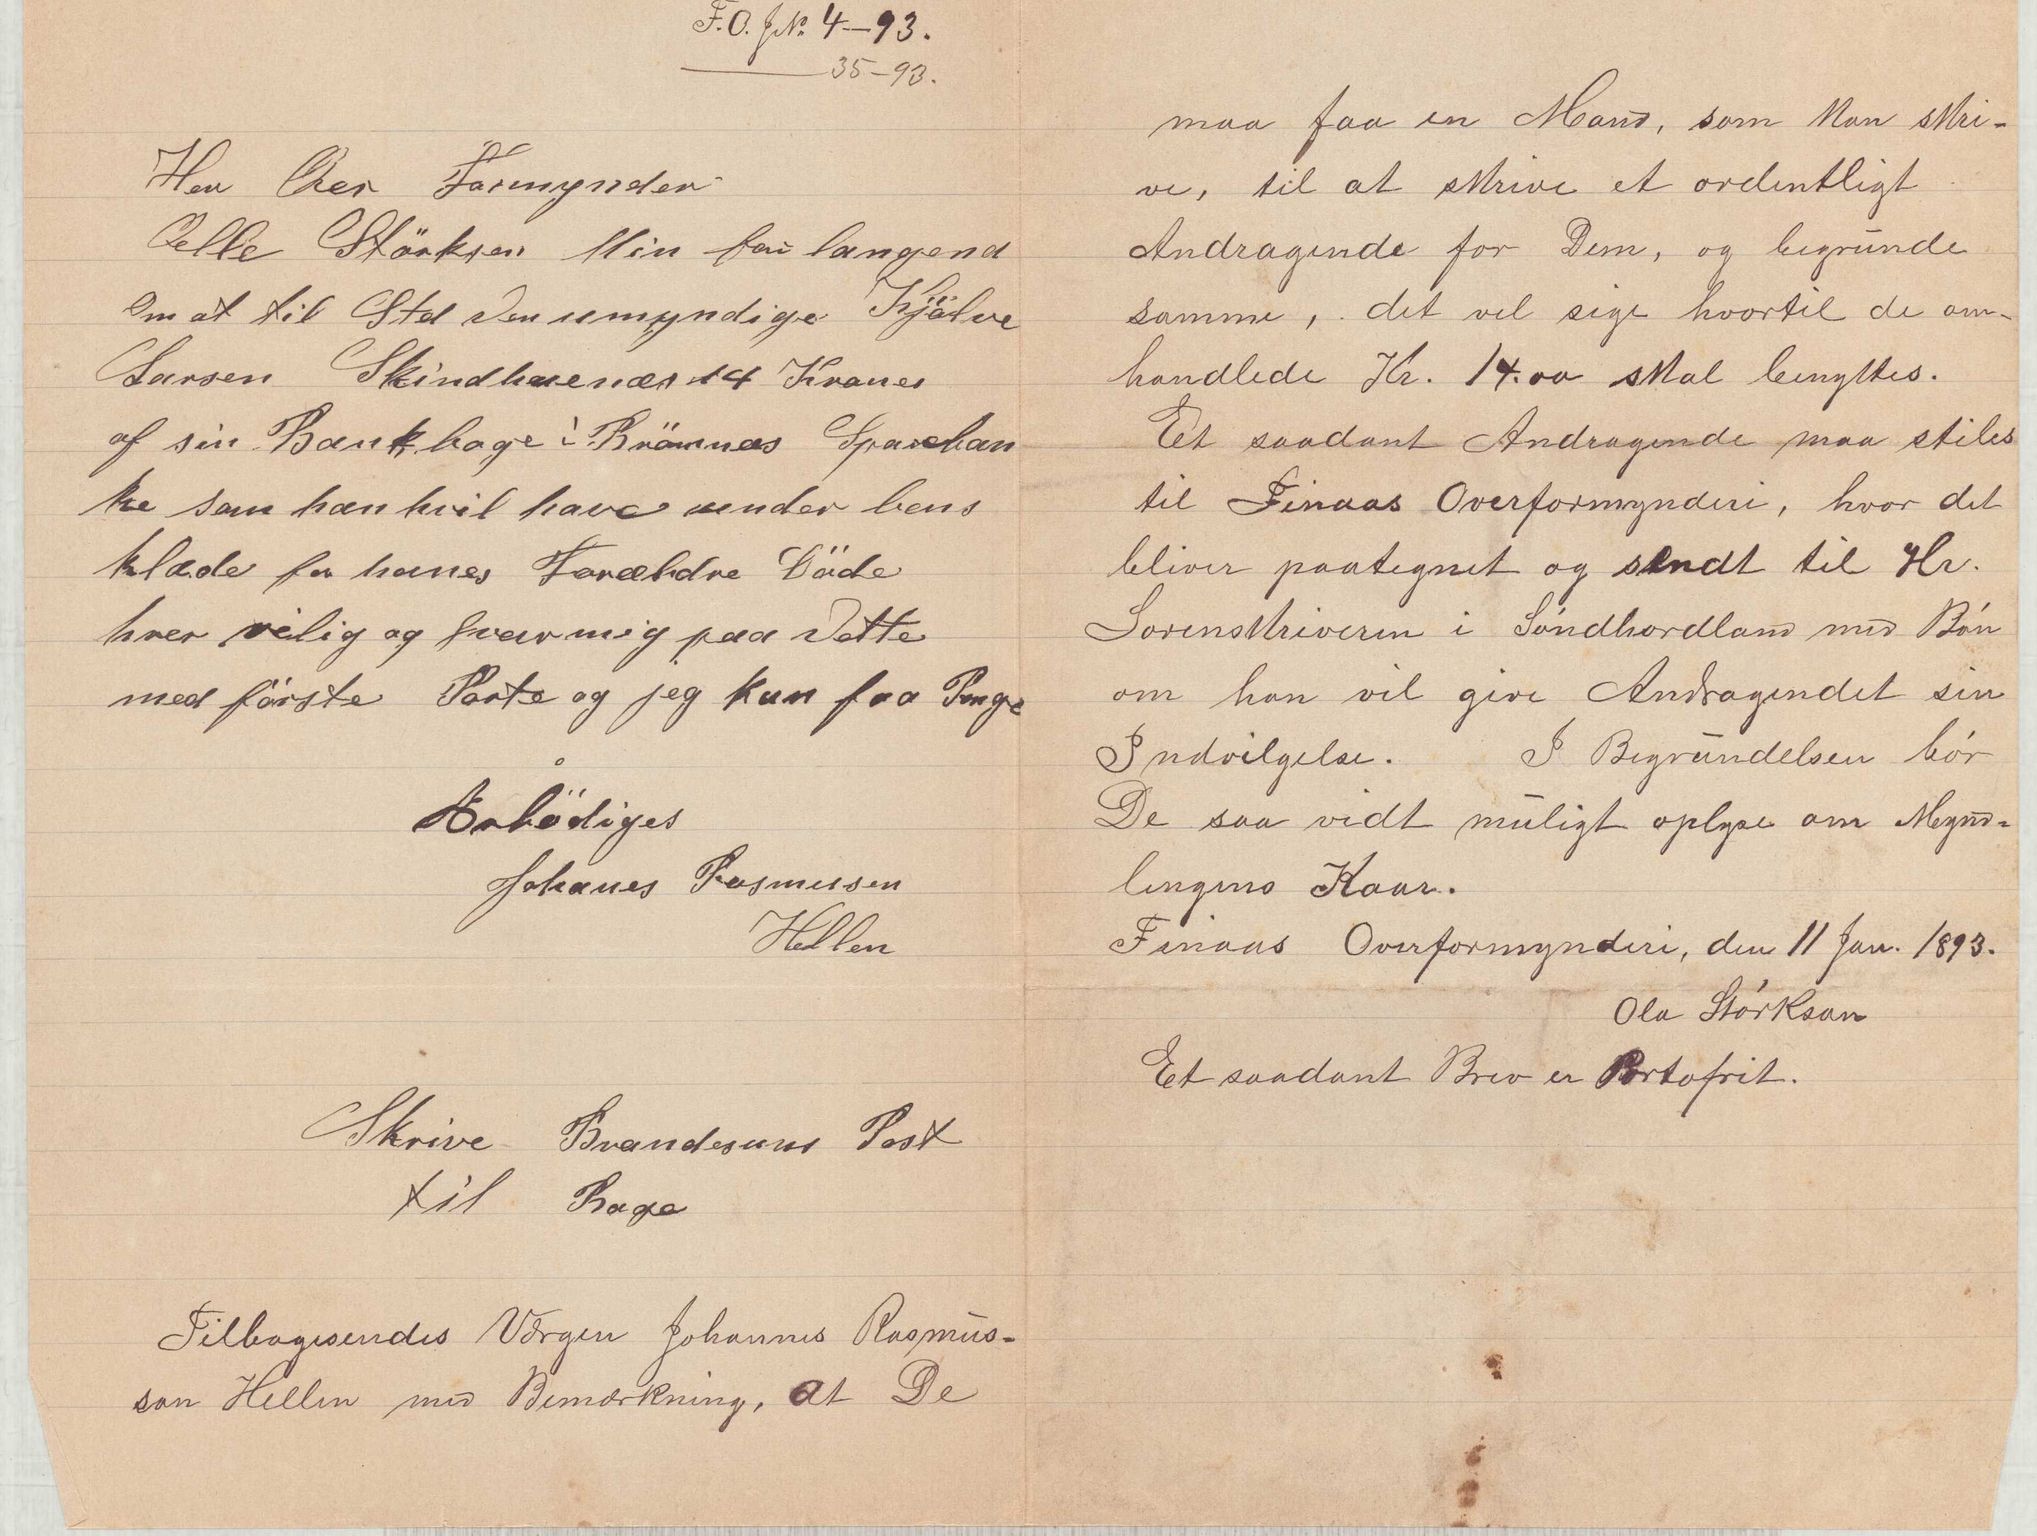 F.O. J№ 4–93.
35–93.
Herr Over Formynder
Oelle Störksen Min for langend
Om at til Sted den umyndige Kjölve
Larsen Skindhuenæs 14 Kroner
af sin Bankboge i Brömnæs Spareban
ke som han hvil have under bens
klæde for hanes Forældre Döde
hver vilig og svar mig paa dette
med förste Poste og jeg kan faa Penge
Ærbödiges
Johanes Rasmusen
Hellen
Skrive Brandesuns Post
til Bage
Tilbagesendes Værgen Johannes Rasmus-
son Hellen med Bemærkning, at De
maa faa en Mand, som kan skri-
ve, til at skrive et ordentligt
Andragende for Dem, og begrunde
samme, det vel sige hvortil de om-
handlede Kr. 14.00 skal benyttes.
Et saadant Andragende maa stiles
til Finaas Overformynderi, hvor det
bliver paategnet og sendt til Hr.
Sorenskriveren i Söndhordland med Bön
om han vil give Andragendet sin
Indvilgelse. I Begrundelsen bör
De saa vidt muligt oplyse om Mynd-
lingens Kaar.
Finaas Overformynderi, den 11 Jan. 1893.
Ola Störkson
Et saadant Brev er Portofrit.